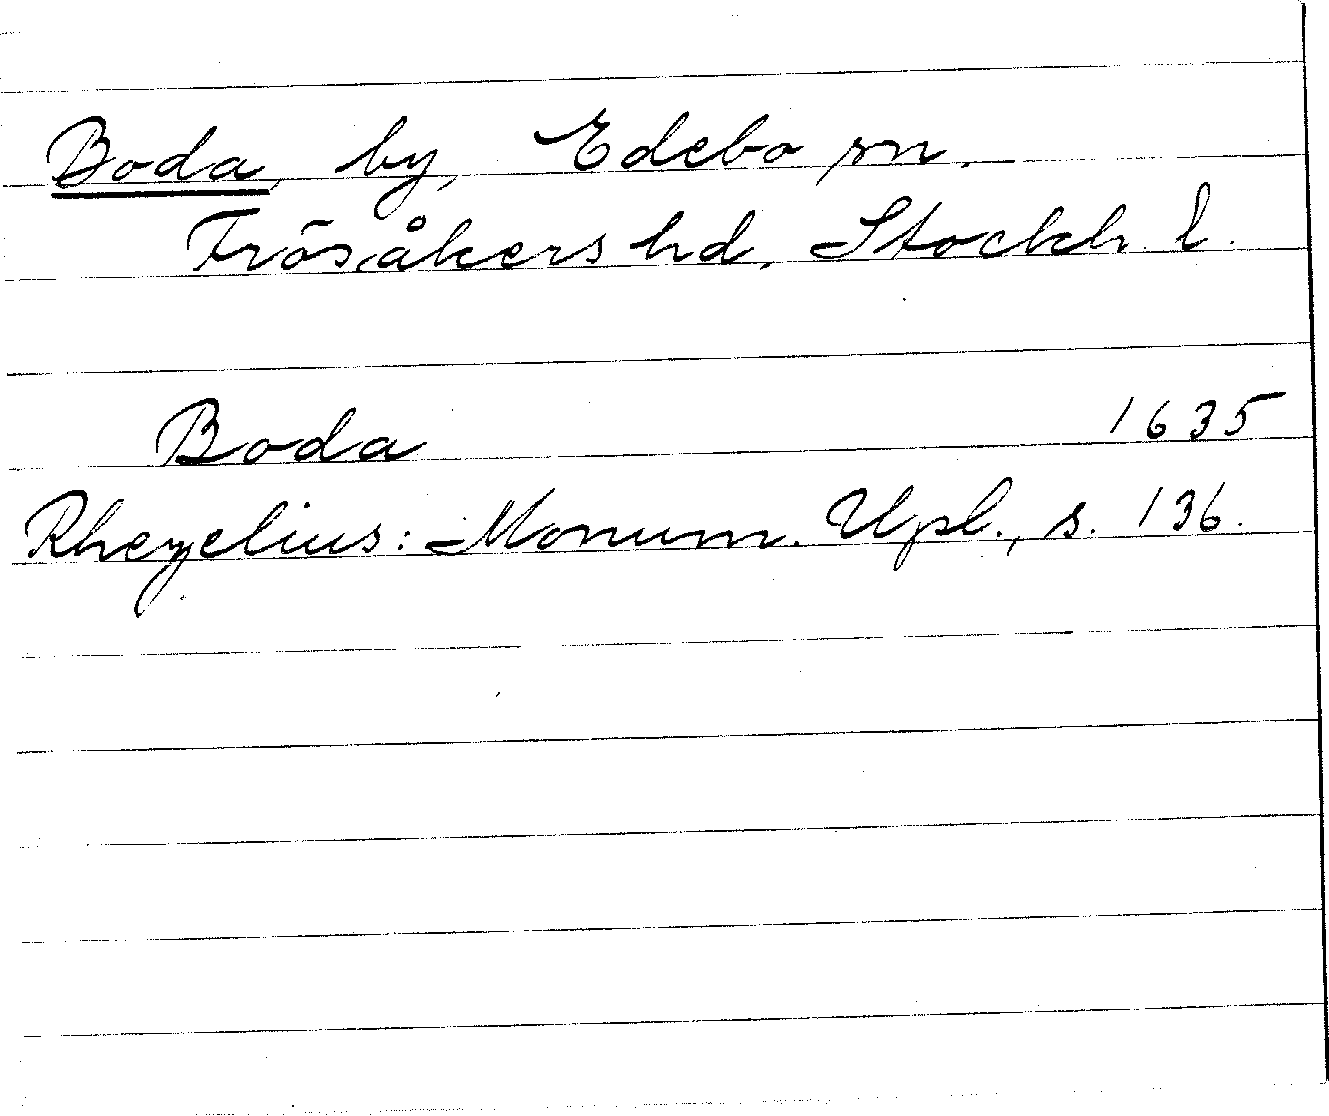 Boda, by, Edebo sn.
Frösåkers hd, Stockh. l.
Boda 1635
Rhezelius: Monum. Upl., s. 136.